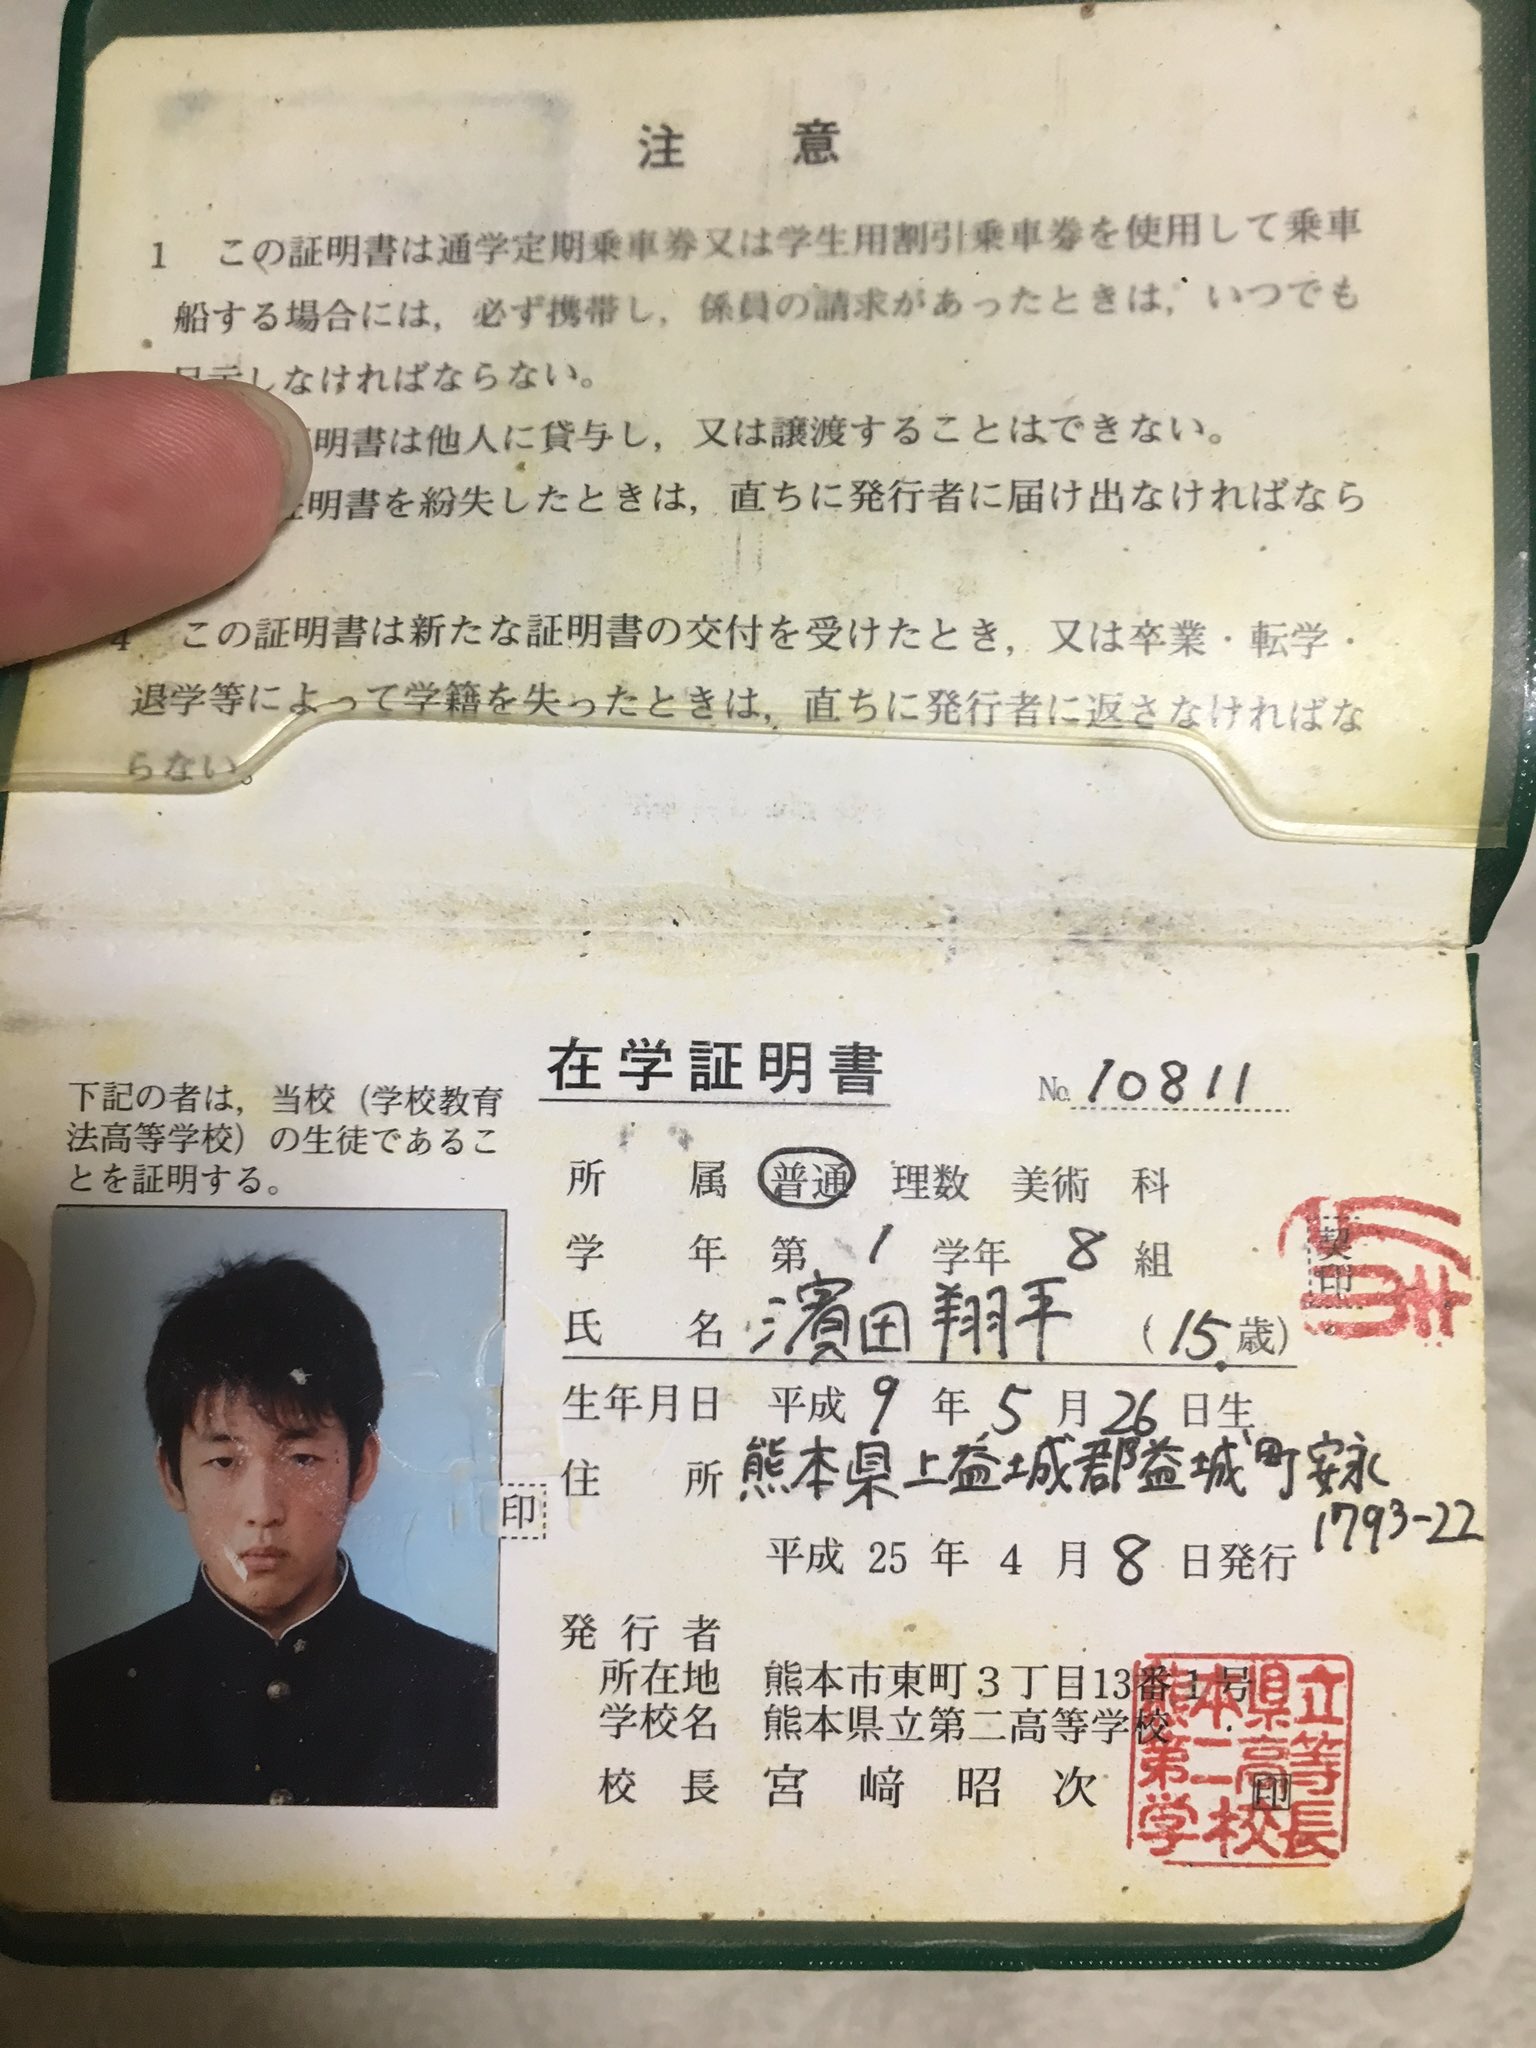 注意
1 この証明書は通学定期乗車券又は学生用割引乗車券を使用して乗車
船する場合には，必ず携帯し，係員の請求があったときは，いつでも
しなければならない。
明書は他人に貸与し，又は譲渡することはできない。
明書を紛失したときは，直ちに発行者に届け出なければなら
4 この証明書は新たな証明書の交付を受けたとき，又は卒業・転学・
退学等によって学籍を失ったときは，直ちに発行者に返さなければな
らない。
在学証明書
No. 10811
下記の者は，当校（学校教育
法高等学校）の生徒であるこ
とを証明する。
所属 普通 理数 美術 科
学年 第 1 学年 8 組
契印
氏名 濱田 翔平 （15歳）
生年月日 平成 9 年 5 月 26 日生
住所 熊本県上益城郡益城町安永
1793-22
印
平成 25 年 4 月 8 日発行
発行者
所在地 熊本市東町3丁目13番1号
学校名 熊本県立第二高等学校
校長 宮﨑昭次 印
熊本県立
第二高等
学校長